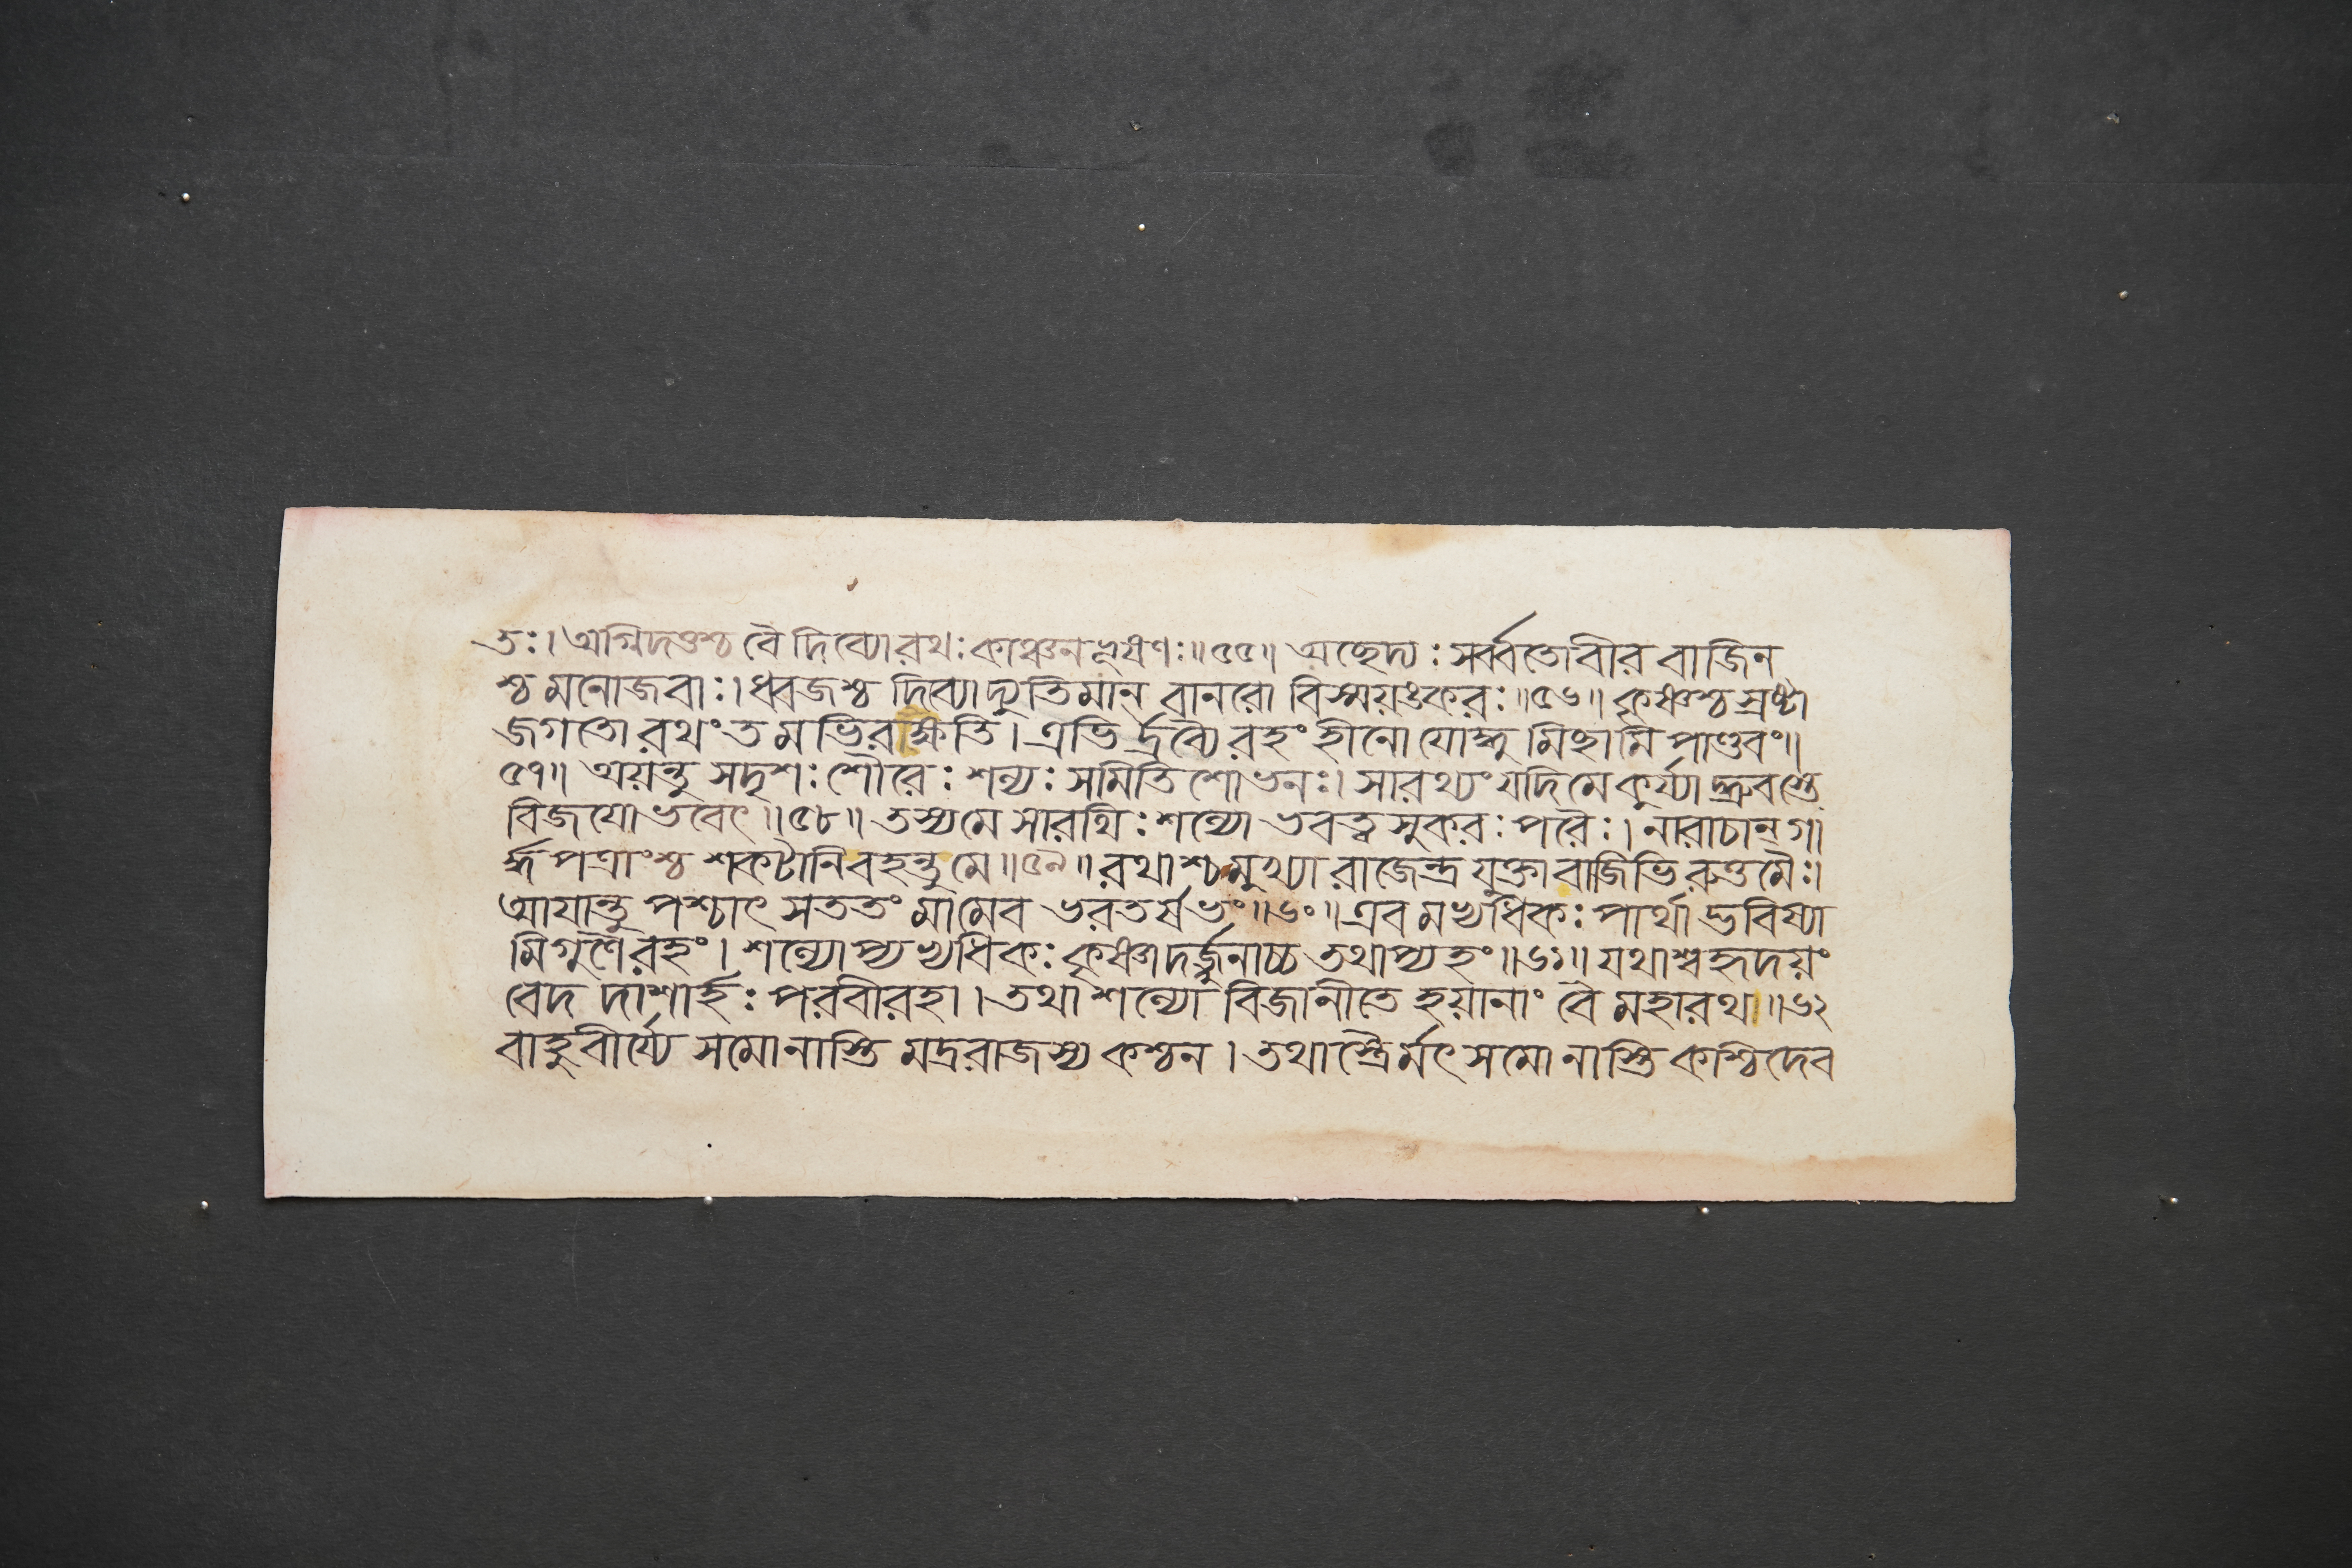 তঃ। অগ্নিদত্তশ্চ বৈ দিব্যো রথঃ কাঞ্চনভূষণঃ॥৫৫॥ অছেদ্যঃ সর্ব্বতো বীর বাজিন
শ্চ মনোজবাঃ। ধ্বজশ্চ দিব্যা দ্যুতিমান্ বানরো বিস্ময়ঙ্করঃ॥৫৬॥ কৃষ্ণশ্চ স্রষ্টা
জগতো রথং তমভিরক্ষতি। এভির্দ্রব্যৈরহং হীনো যোদ্ধুমিছামি পাণ্ডবং॥
৫৭॥ অয়ন্তু সদৃশঃ শৌরেঃ শল্যঃ সমিতিশোভনঃ। সারথ্যং যদি মে কুর্য্যাদ্ধ্রুবস্তে
বিজয়ো ভবেৎ॥৫৮॥ তস্য মে সারথিঃ শল্যো ভবত্বসুকরঃ পরৈঃ। নারাচান্ গা
র্দ্ধপত্রাংশ্চ শকটানি বহন্তু মে॥৫৯॥ রথাশ্চ মুখ্যা রাজেন্দ্র যুক্তা বাজিভিরুত্তমৈঃ।
আয়ান্তু পশ্চাৎ সততং মামেব ভরতর্ষভং॥৬০॥ এবমভ্যধিকঃ পার্থাদ্ভবিষ্যা
মি গুণৈরহং। শল্যোপ্যভ্যধিকঃ কৃষ্ণাদর্জ্জুনাচ্চ তথাপ্যহং॥৬১॥ যথাশ্বহৃদয়ং
বেদ দাশার্হঃ পরবীরহা। তথা শল্যো বিজানীতে হয়ানাং বৈ মহারথ॥৬২
বাহুবীর্য্যে সমো নাস্তি মদ্ররাজস্য কশ্চন। তথাস্ত্রৈর্মৎসমো নাস্তি কশ্চিদেব